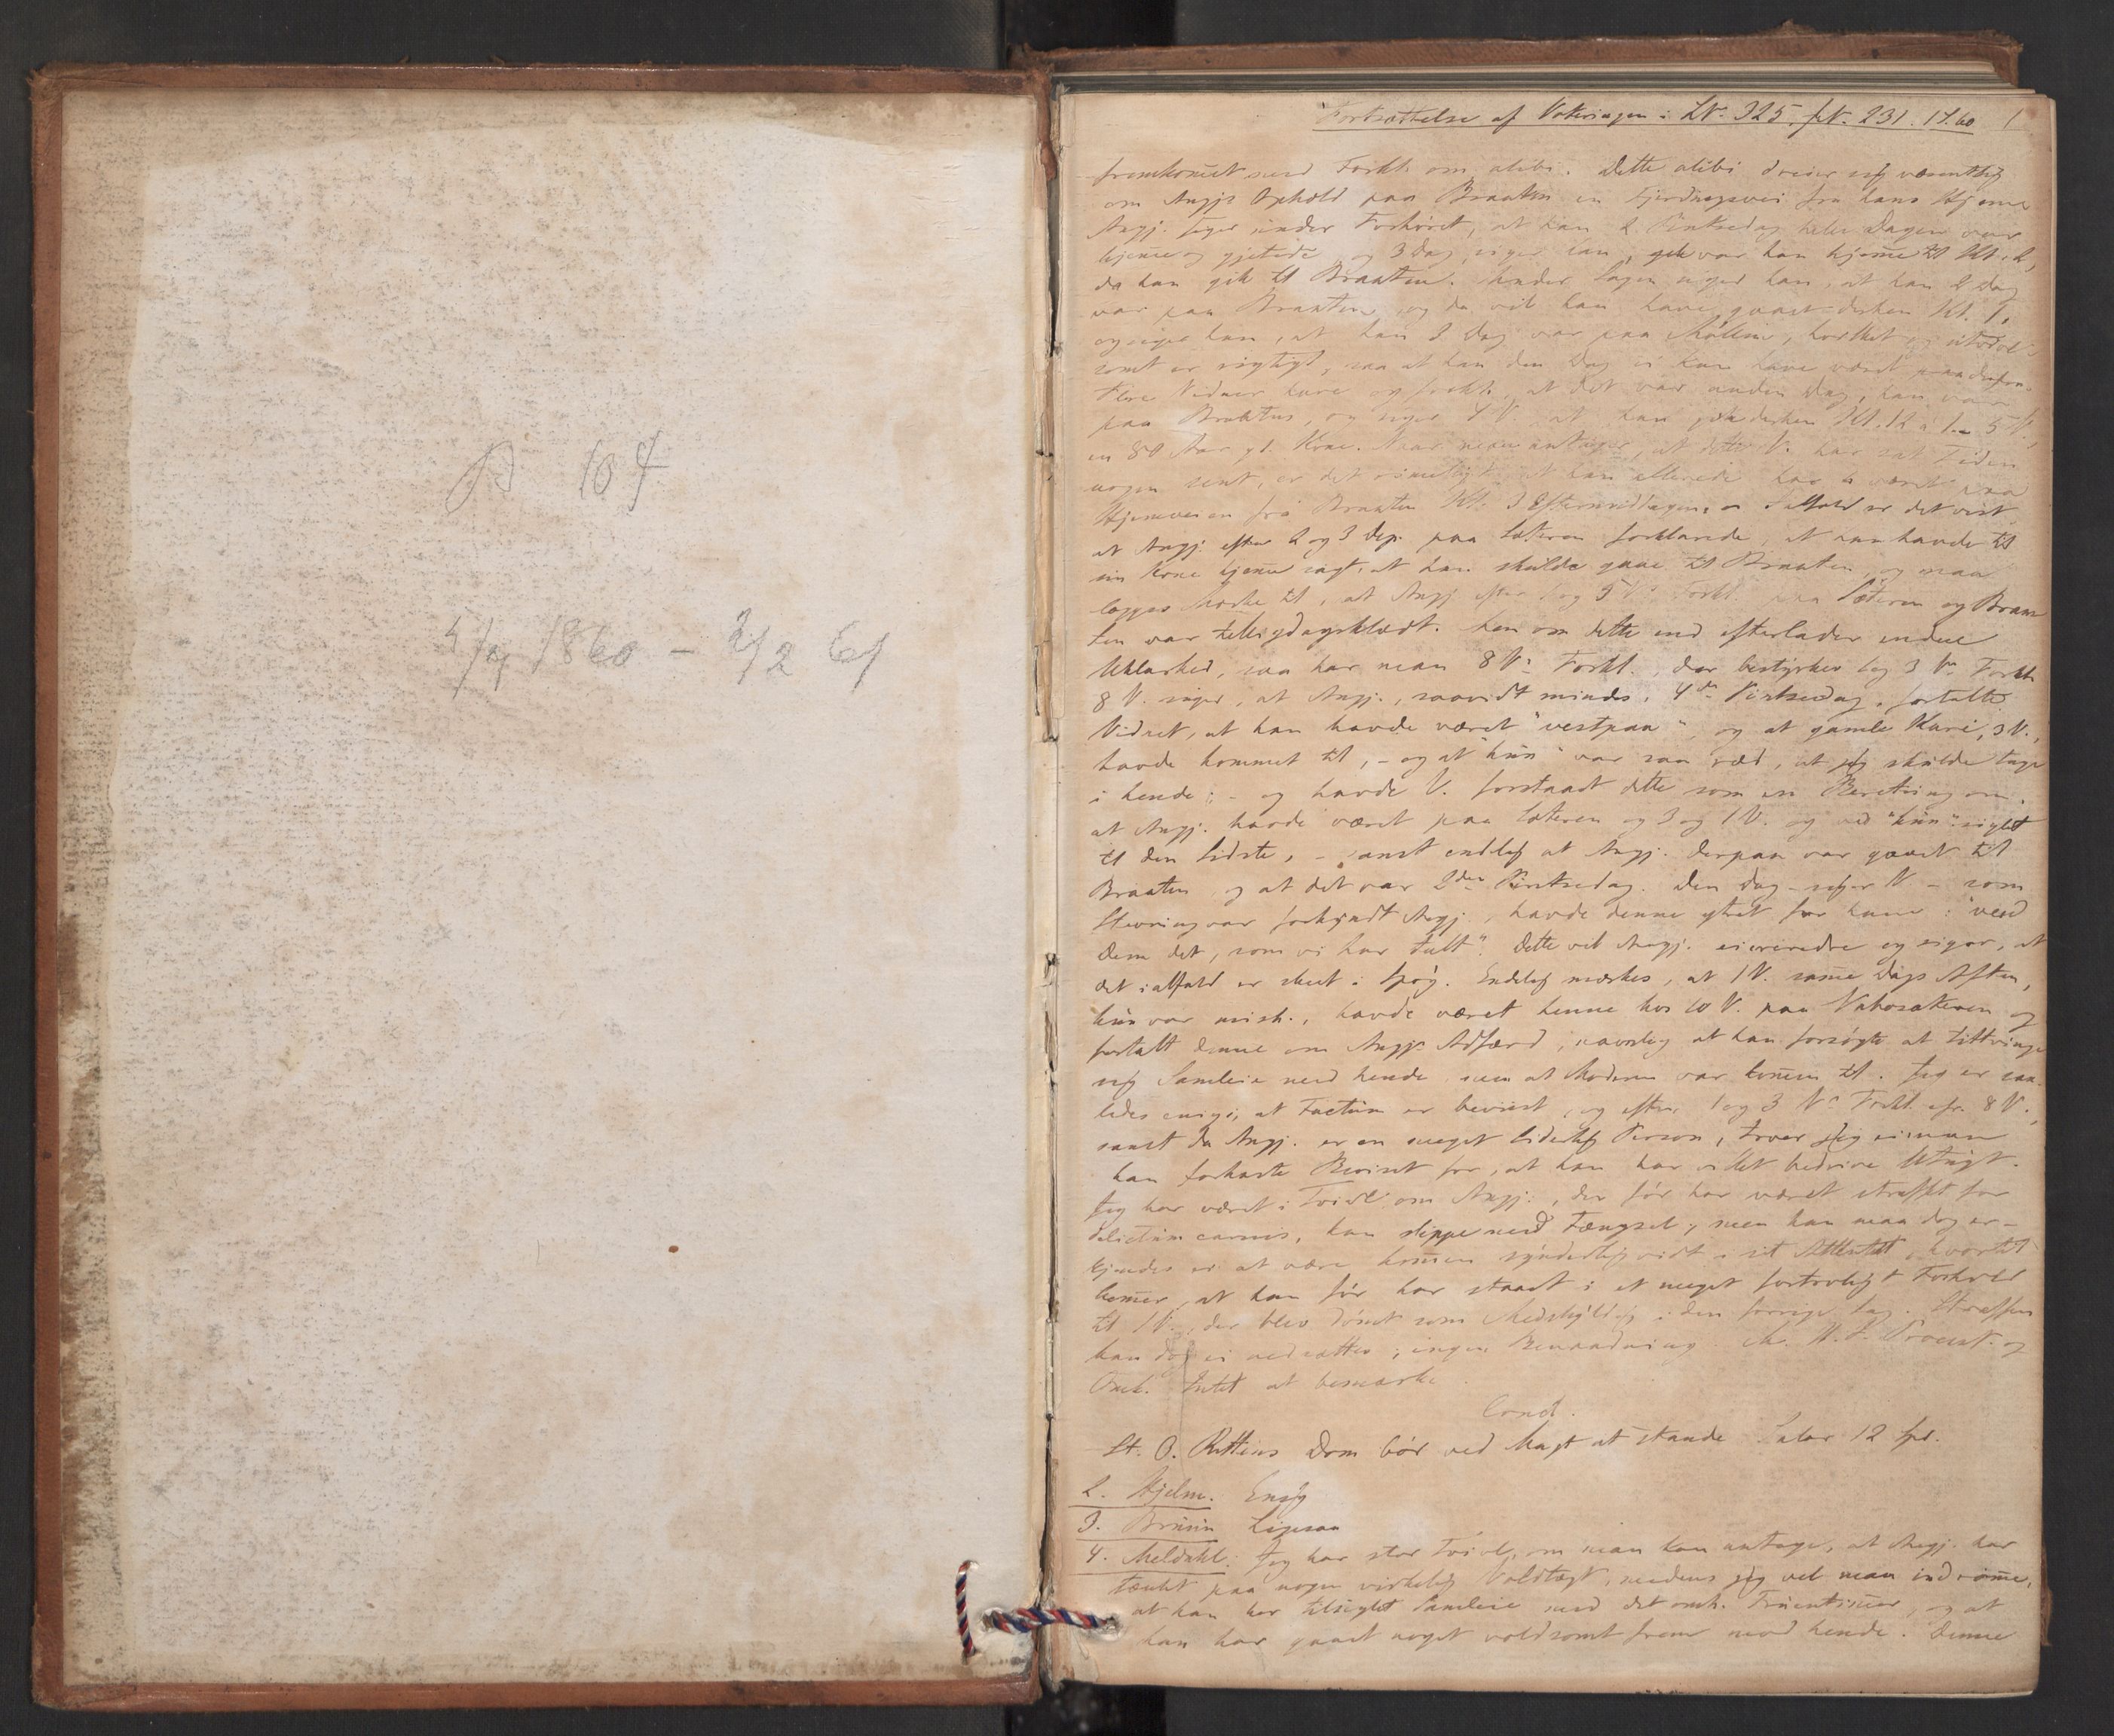 B 104
5/9 1860 - 2/2 61
Fortsættelse af Voteringen i LN. 325, fN. 231. 1f. 60. 1
fremkommet med Forkl. om alibi. Dette alibi dreier sig væsentlig
om Angjs Ophold paa Braaten en Fjerdingsvei fra hans Hjem
Angj. siger under Forhøret, at han 2 Pintsedag hele Dagen var
hjemme og gjetede, og 3 Dag, siger han, var han hjemme til Kl. 2,
da han gik til Braaten. Under Sagen siger han, at han 2 Dag
var paa Braaten, og da vil han have gaaet derhen Kl. 1,
og siger han, at han 3 Dag var paa Møllen, hvilket
somt er rigtigt, saa at han den Dag ei kan have været
Flere Vidner have og forkl., at det var anden Dag, han var
paa Braaten, og siger 4 V. at han gik derhen Kl. 12 à 1. 5 V.,
en 80 Aar gl. Kone. Naar man antager, at dette V. har sat Tiden
nogen sent, er det rimeligt at han allerede har været paa
Hjemveien fra Braaten Kl. 3 Eftermiddagen. Ialfald er det vist
at Angj. efter 2 og 3 Dep. paa Sæteren forklarede, at han havde til
sin Kone hjemme sagt, at han skulde gaae til Braaten, og maa
lægges Mærke til, at Angj. efter 1 og 5 Vs Forkl. paa Sæteren og Braa
ten var helligdagsklædt. Men om dette end efterlader endeel
Uklarhed, saa har man 8 Vs Forkl., der bestyrker 1 og 3 Vs Forkl.
8 V. siger, at Angj., saavidt mindes, 4de Pintsedag, fortalte
Vidnet, at han havde været "vestpaa", og at gamle Kari, 3 V.,
havde kommet til, - og at "hun" var saa ræd, at jeg skulde tage
i hende; - og havde V. forstaaet dette som en Beretning om,
at Angj. havde været paa Sæteren og 3 og 1 V. og ved "hun" sigtet
til den Sidste, - samt endelig at Angj. derpaa var gaaet til
Braaten og at det var 2den Pintsedag. Den Dag - siger V. - som
Stevning var forkyndt Angj., havde denne ytret for ham: "vend
Dem det, som vi har talt". Dette vil Angj. ei erindre og siger, at
det ialfald er skeet i Spøg. Endelig mærkes, at 1 V. samme Dags Aften,
hun var mish., havde været henne hos 10 V. paa Nabosæteren og
fortalt denne om Angjs Adfærd, navnlig at han forsøgte at tiltvinge
sig Samleie med hende, men at Moderen var kommen til. Jeg er saa
ledes enig i, at Factum er beviist, og efter 1 og 3 Vs Forkl. cfr. 8 V.,
samt da Angj. er en meget liderlig Person, troer jeg ei man
kan forkaste Beviset for, at han har villet bedrive Utugt.
Jeg har været i Tvivl om Angj., der før har været straffet for
delictum carnis, kan slippe med Fængsel, men han maa dog er-
kjendes ei at være kommen synderlig vidt i sit Attentat, hvortil
kommer, at han før har staaet i et meget fortroligt Forhold
til 1 V., der blev dømt som Medskyldig i den forrige Sag. Straffen
kan dog ei nedsættes; ingen Benaadning. Procur. og
Omk. Intet at bemærke.
Concl.
St. O. Rettens Dom bør ved Magt at stande. Salær 12 Spd.
2. Hjelm. Enig
3. Bruun Ligesaa
4. Meldahl: Jeg har stor Tvivl, om man kan antage, at Angj. har
tænkt paa nogen virkelig Voldtægt, medens jeg vel maa indrømme,
at han har tilsigtet Samleie med det omh. Fruentimmer, og at
han har gaaet noget voldsomt frem mod hende. Denne